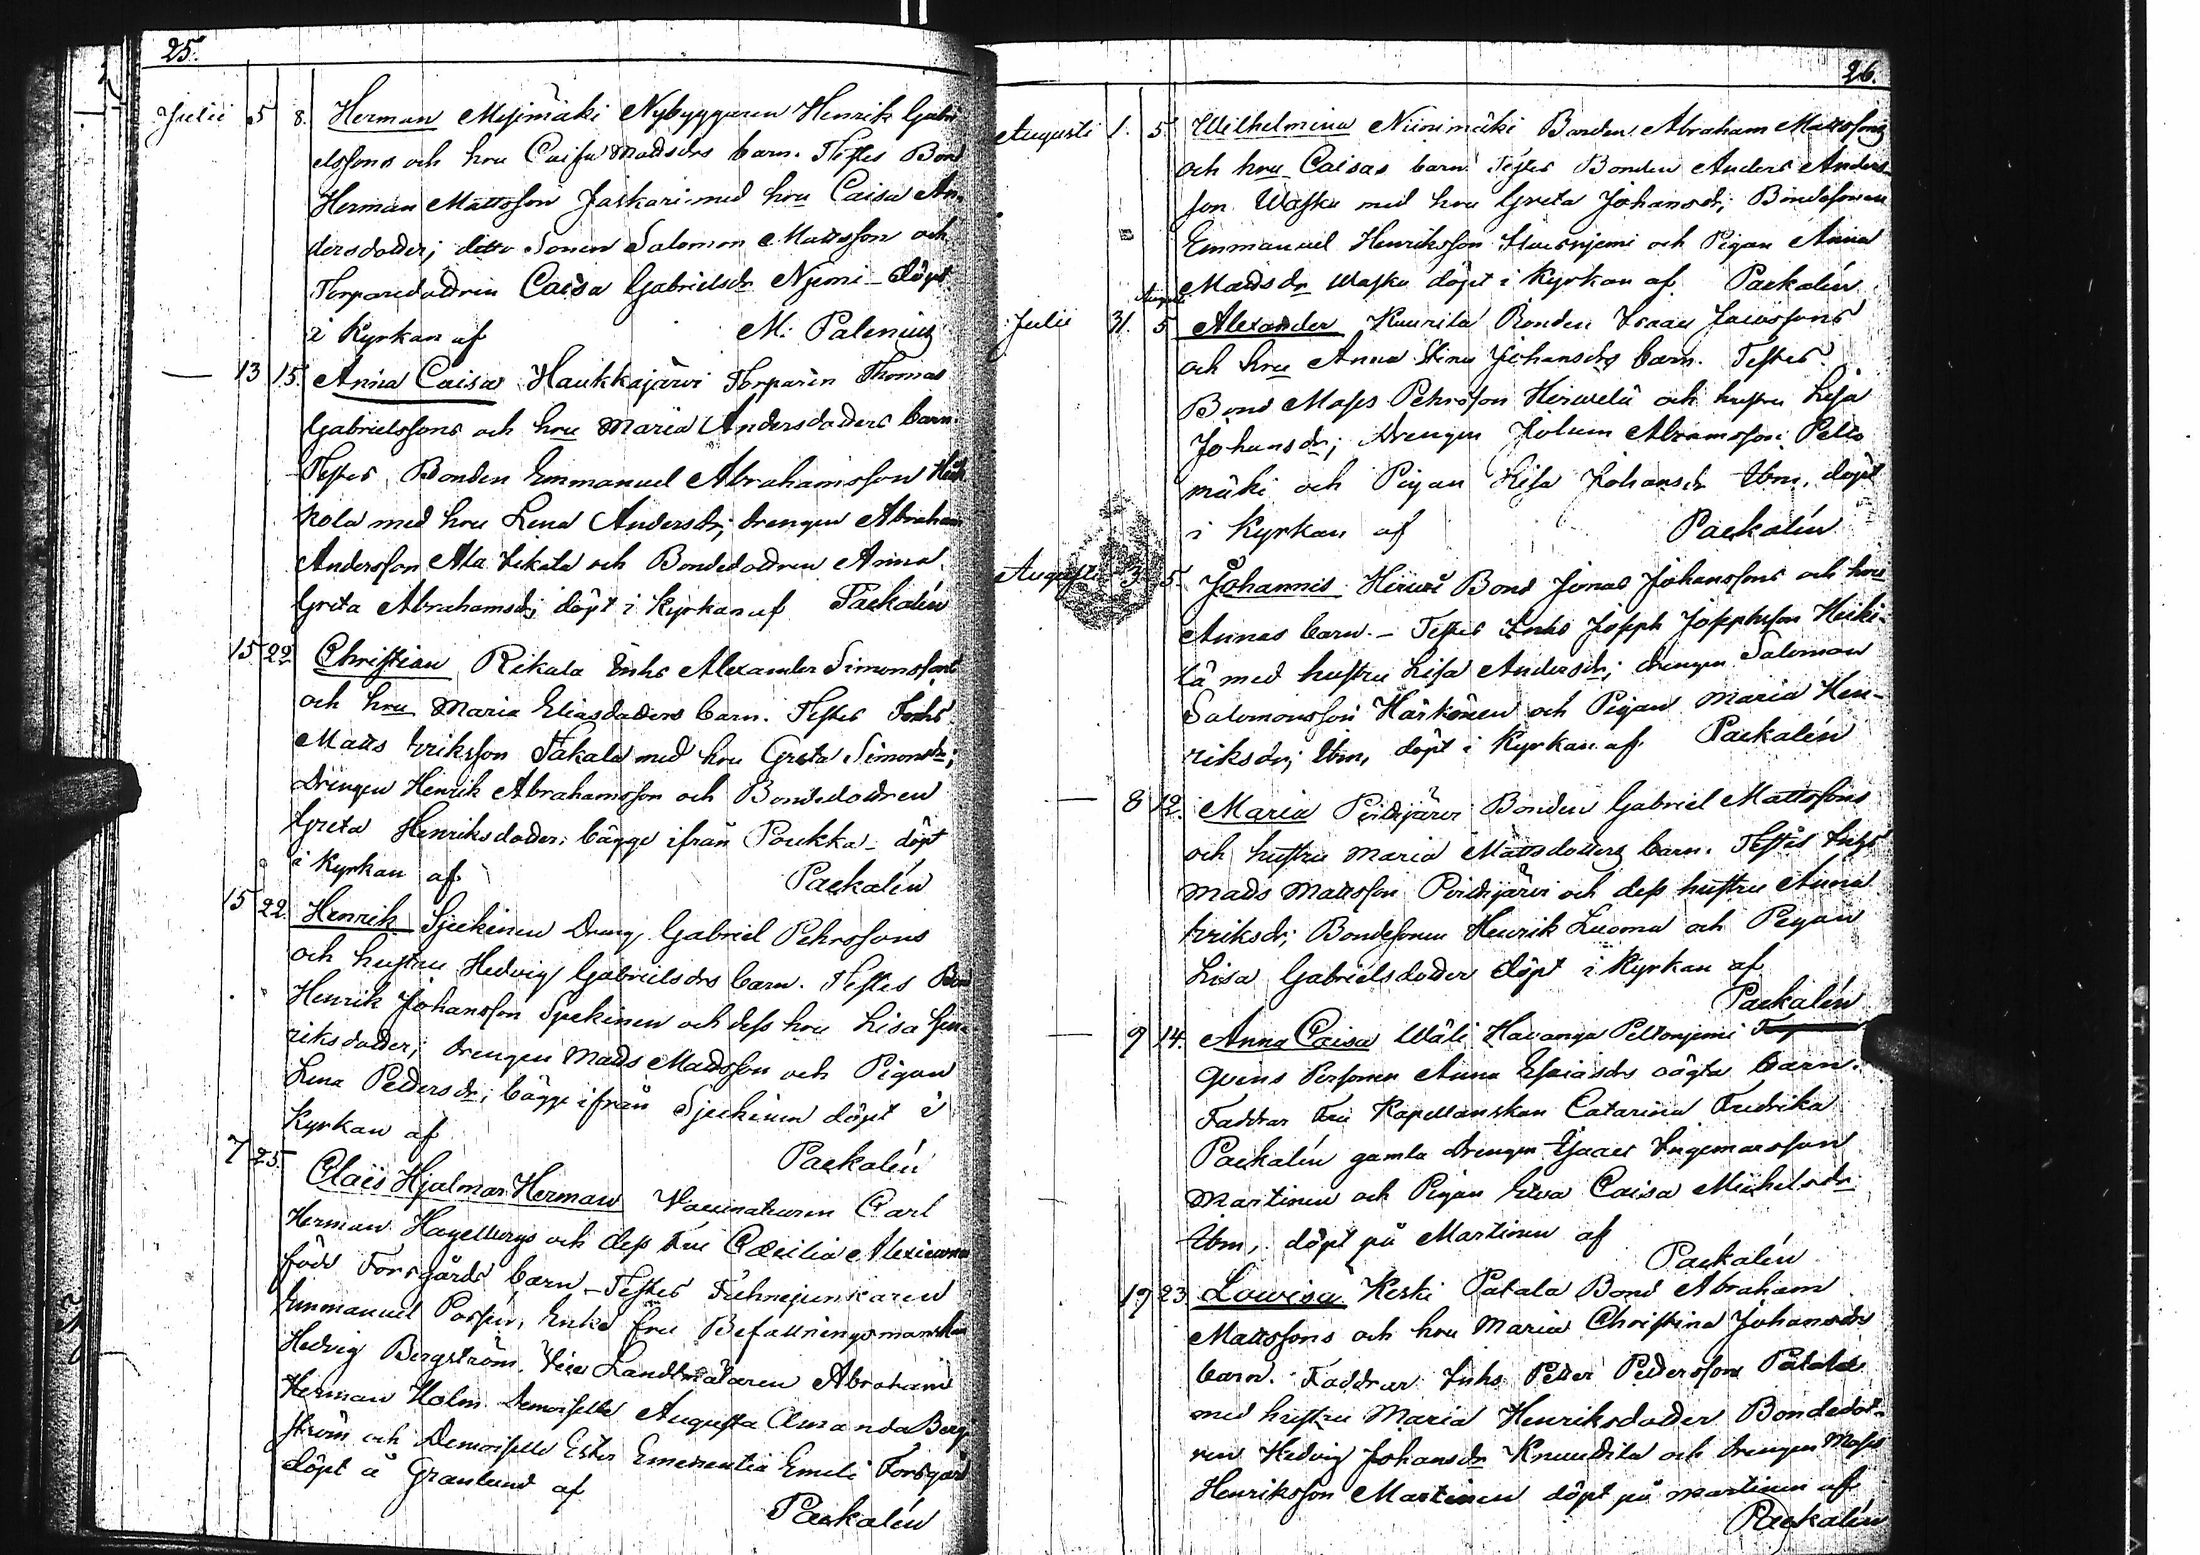 25.
Julii 5 8. Herman Mesimäki Nybyggaren Henrik Gabri
elssons och hru Caisa Madsdrs barn. Testes Bond
Herman Mattsson Jaskari med hru Caisa An-
dersdotter; ditto Sonen Salomon Mattsson och
Torparedottren Caisa Gabrielsdr Njemi - döpt
i Kyrkan af M. Palenius
— 13 15. Anna Caisa Haukkajärvi Torparen Thomas
Gabrielssons och hru Maria Andersdotters barn.
Testes Bonden Emmanuel Abrahamsson
kola med hru Lena Andersdr; drengen Abraham
Andersson Ala och Bondedottren Anna
Greta Abrahamsdr; döpt i Kyrkan af Paekalén
15 22 Christian Rikala Inhs Alexander Simonssons
och hru Maria Eliasdotters barn. Testes Inhs
Matts Eriksson Takala med hru Greta Simonsdr;
Drengen Henrik Abrahamsson och Bondedottren
Greta Henriksdotter; bägge ifrån Poukka - döpt
i Kyrkan af Paekalén
15 22. Henrik Sjeckinen Dreng Gabriel Pehrssons
och hustru Hedvig Gabrielsdrs barn. Testes Bond
Henrik Johansson Sjeckinen och dess hru Lisa Hen
riksdotter; drengen Mads Madsson och Pigan
Lena Pedersdr; bägge ifrån Sjeckinen döpt i
Kyrkan af Paekalén
7 25. Claës Hjalmar Herman Vaccinateuren Carl
Herman Hagelbergs och dess Fru Cæcilia
född Forsgårds barn - Testes Fähnejunkaren
Emmanuel Enke fru Befallningsmanskan
Hedvig Bergström. Vice Landtmätaren Abraham
Herman Holm Demoiselle Augusta Amanda Berg
ström och Demoiselle Ester Emerentia Emeli Forsgård
döpt å Granlund af
Paekalén
26.
Augusti 1. 5. Wilhelmina Niinimäki Bonden Abraham Mattssons
och hru Caisas barn. Testes Bonden Anders Anders-
son Wasku med hru Greta Johansdr; Bondesonen
Emmanuel Henriksson och Pigan Anna
Madsdr Wasku döpt i Kyrkan af Paekalén
Julii 31. Augusti 5 Alexander Kuurila Bonden Isaac Jacossons
och hru Anna Stina Johansdrs barn. Testes
Bond Moses Pehrsson Hirwelä och hustru Lisa
Johansdr; Drengen Abramsson Pelto
mäki och Pigan Lisa Johansdr Ibm, döpt
i Kyrkan af Paekalén
Augusti 3. 5. Johannis Bond Jonas Johanssons och hru
Annas barn. - Testes Inhs Joseph Josephsson Heiki-
lä med hustru Lisa Andersdr; drengen Salomon
Salomonsson Härkönen och Pigan Maria Hen-
riksdr; Ibm, döpt i Kyrkan af Paekalén
— 8 12. Maria Bonden Gabriel Mattssons
och hustru Maria Mattsdotters barn. Testes Inhs
Mads Mattsson och dess hustru Anna
Eriksdr; Bondesonen Henrik Luoma och Pigan
Lisa Gabrielsdotter döpt i Kyrkan af
Paekalén
— 9 14. Anna Caisa Wäli Havanga Peltonjemi
Qvins Personen Anna Esaiasdrs oägta barn.
Faddrar Fru Kapellanskan Catarina Fredrika
Paekalén gamla Drengen Isaac Ingemarsson
Martinen och Pigan Ewa Caisa Michelsdr
Ibm, döpt på Martinen af
Paekalén
19 23 Lowisa Keski Patala Bond Abraham
Mattssons och hru Maria Christina Johansdrs
barn. Faddrar Inhs Peter Pedersson Patala
med hustru Maria Henriksdotter Bondedott-
ren Hedvig Johansdr Knuuttila och drengen Moses
Henriksson Martinen döpt på Martinen af
Paekalén